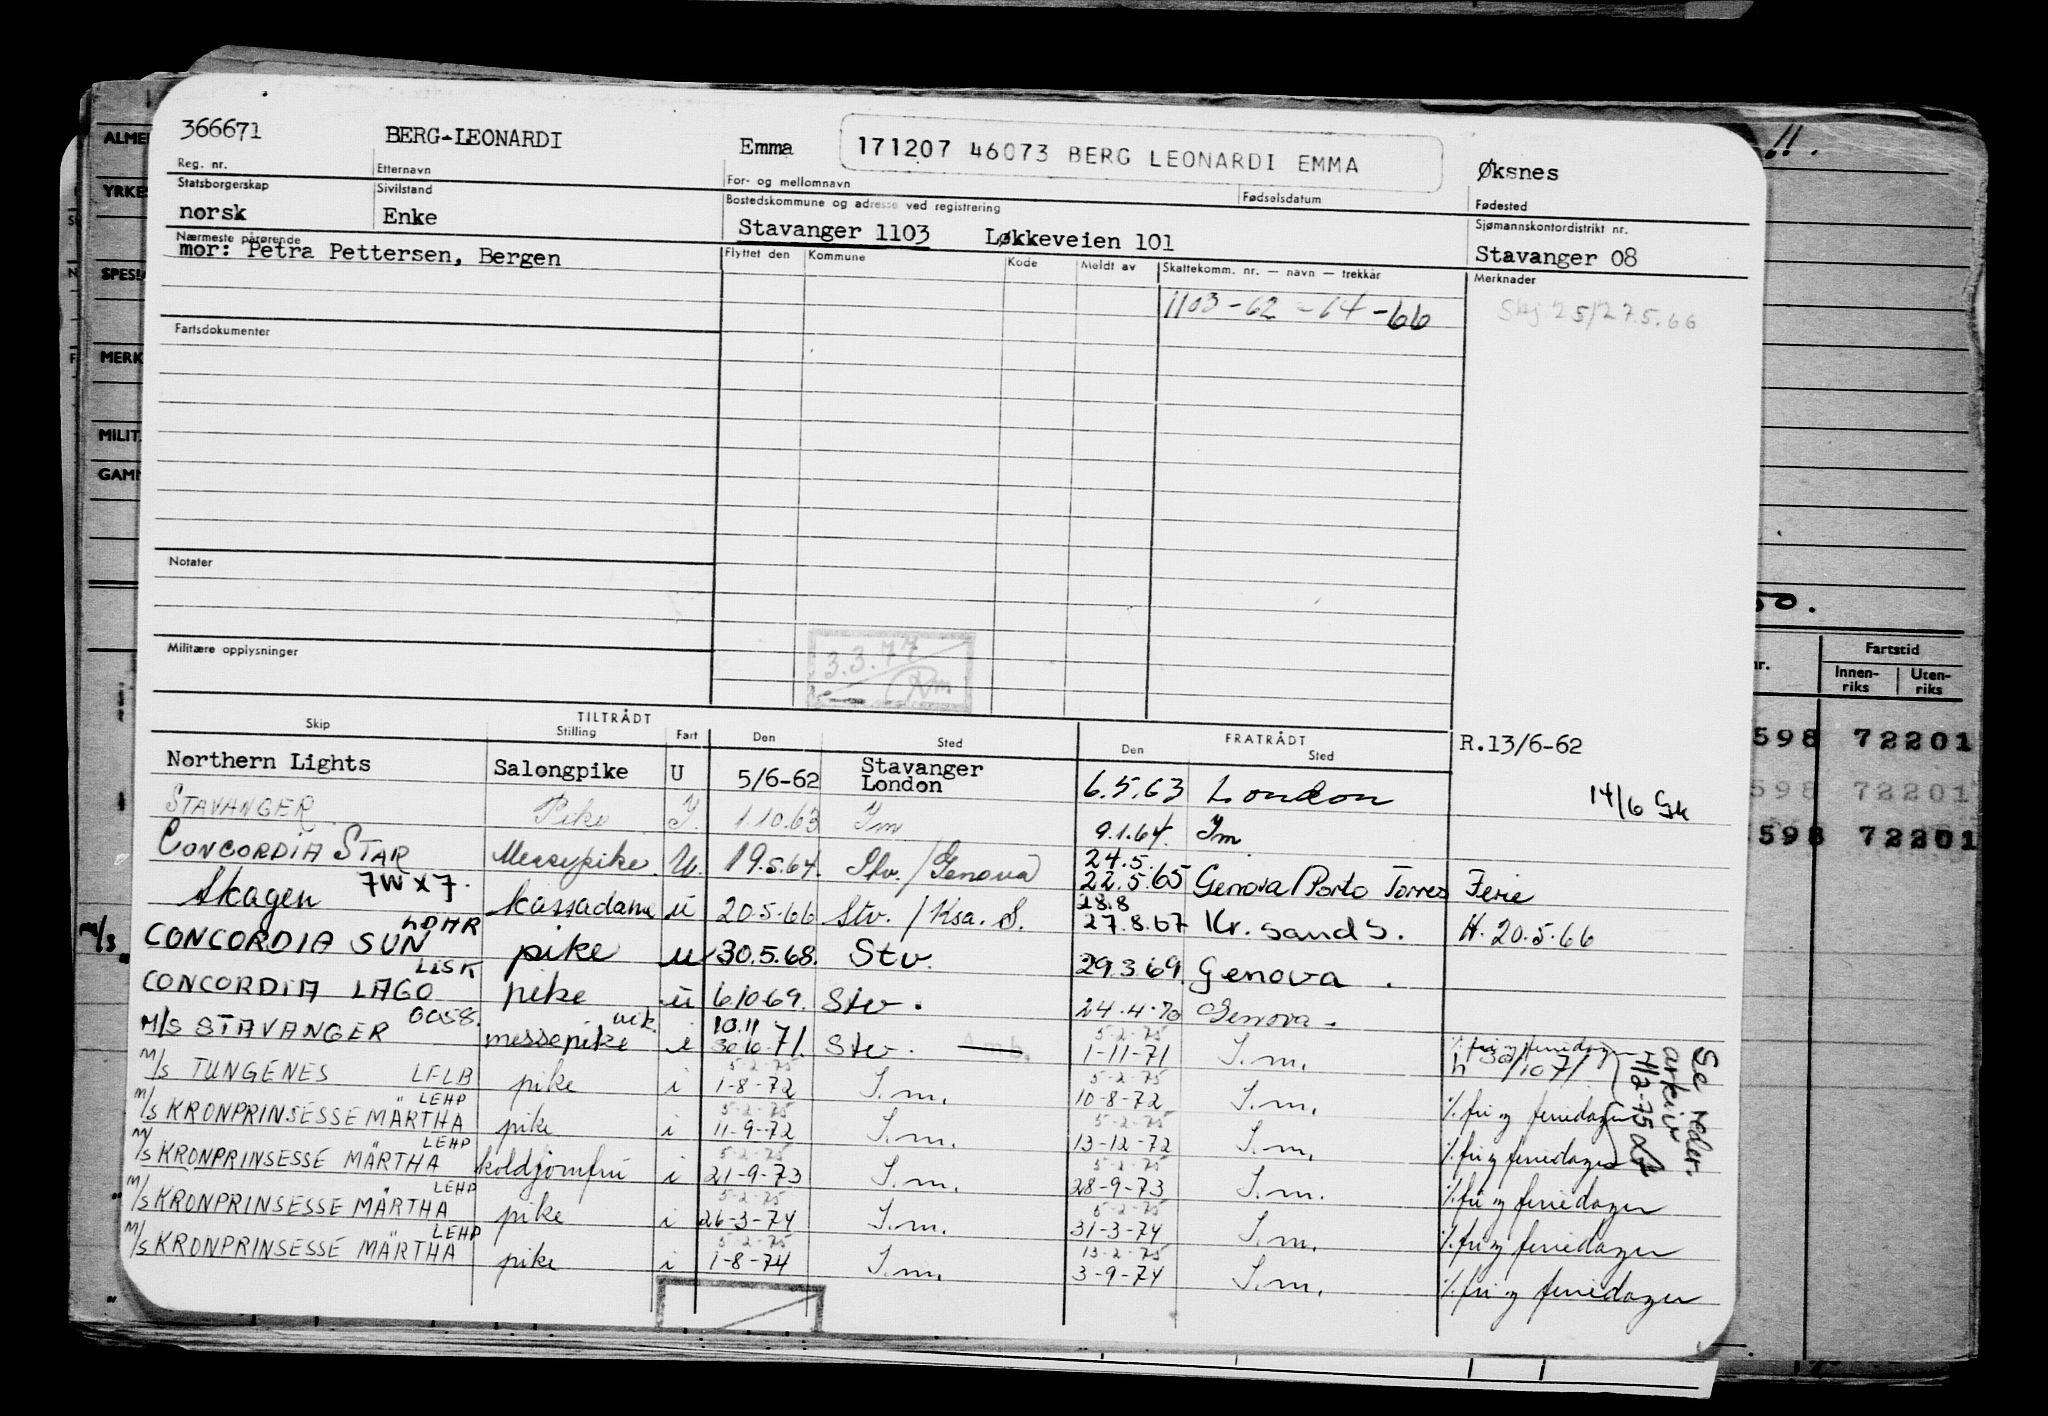 366671 BERG-LEONARDI Emma 171207 46073 BERG LEONARDI EMMA Øksnes
Reg. nr. Etternavn For- og mellomnavn Fødselsdatum Fødested
Statsborgerskap Sivilstand Bostedskommune og adresse ved registrering Sjømannskontordistrikt nr.
norsk Enke Stavanger 1103 Løkkeveien 101 Stavanger 08
Nærmeste pårørende Flyttet den Kommune Kode Meldt av Skattekomm. nr. — navn — trekkår Merknader
mor: Petra Pettersen, Bergen
1103-62-64-66 25/27.5.66
Fartsdokumenter
Notater
Militære opplysninger
3.3.77
TILTRÅDT FRATRÅDT
Skip Stilling Fart Den Sted Den Sted R.13/6-62
Northern Lights Salongpike U 5/6-62 Stavanger London 6.5.63 London 14/6
STAVANGER Pike I. 1.10.63 Im 9.1.64. Im
CONCORDIA STAR Messepike. U. 19.5.64. Stv./Genova 24.5. 22.5.65 Genova/Porto Torres Ferie
7WX7.
Skagen kassadame u 20.5.66 Stv. / Ksa. S. 28.8 27.8.67 Kr. sand S. H. 20.5.66
LDHR
m/s CONCORDIA SUN pike u 30.5.68. Stv. 29.3.69 Genova.
LISK
CONCORDIA LAGO pike u 6.10.69. Stv. 24.4.70 Genova.
M/S STAVANGER messepike vik. i 10.11 30.10.71. Stv. 5-2-75 1-11-71 I.m. % fri og feriedager
M/S TUNGENES LFLB pike i 5-2-75 1-8-72 I.m. 5-2-75 10-8-72 I.m. % fri og feriedager
M/S KRONPRINSESSE MÄRTHA LEHP pike i 5-2-75 11-9-72 I.m. 5-2-75 13-12-72 I.m. % fri og feriedager
M/S KRONPRINSESSE MÄRTHA LEHP koldjomfru i 5-2-75 21-9-73 I.m. 5-2-75 28-9-73 I.m. % fri og feriedager
M/S KRONPRINSESSE MÄRTHA LEHP pike i 5-2-75 26-3-74 I.m. 5-2-75 31-3-74 I.m. % fri og feriedager
M/S KRONPRINSESSE MÄRTHA LEHP pike i 5-2-75 1-8-74 I.m. 13-2-75 3-9-74 I.m. % fri og feriedager
Se reder.
arkiv
4/2-75
ALME
YRKE
MERK
MILIT
GAM
50.
Fartstid
Innen-riks Uten-riks
598 72201
598 72201
598 72201